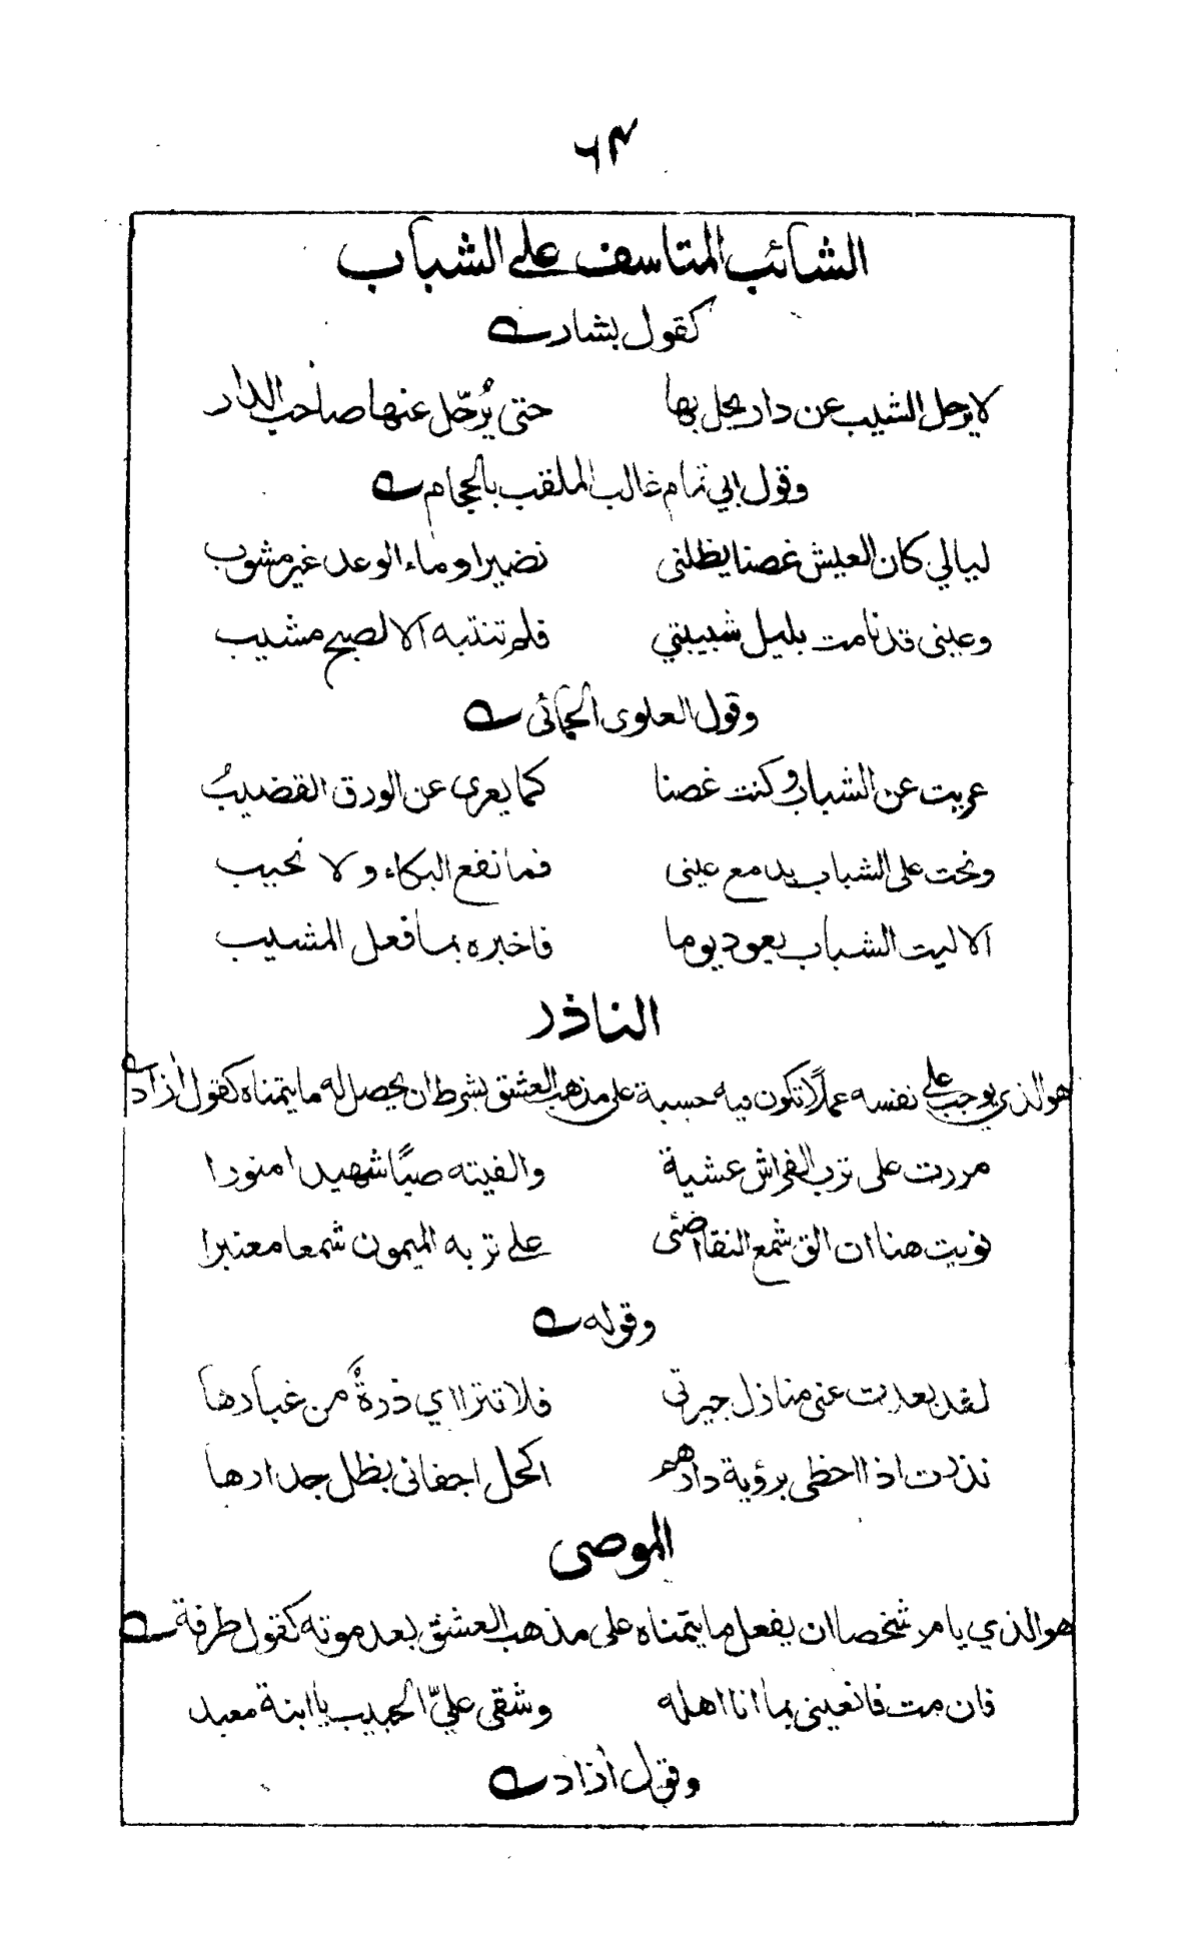 ٦٣
الشائب المتاسف على الشباب
كقول بشار
لا يرحل الشيب عن دار يحل بها حتى يُرحّل عنها صاحب الدار
وقول ابي تمام غالب الملقب بالحجام
ليالي كان العيش غصنا يظلنى نضيرا وماء الوعد غير مشوب
وعينى قد نامت بليل شبيبتي فلم تنتبه الا لصبح مشيب
وقول العلوى الحمانى
عريت عن الشباب وكنت غصنا كما يعرى عن الورق القضيبُ
ونحت على الشباب بدمع عينى فما نفع البكاء ولا نحيب
الا ليت الشباب يعود يوما فاخبره بما فعل المشيب
الناذر
هو الذي يوجب على نفسه عملًا تكون فيه حسبة على مذهب العشق بشرط ان يحصل له ما يتمناه كقول أزاد
مررت على ترب الفراش عشية والفيته صبًا شهيدا منورا
نويت هنا ان الق شمع النقا اضئى على تربه الميمون شمعا معنبرا
وقوله
لقد بعدت عنى منازل جيرتى فلا تترااي ذرةٌ من غبارها
نذرت اذا احظى برؤية دارهم اكحل اجفانى بظل جدارها
الموصى
هو الذي يامر شخصا ان يفعل ما يتمناه على مذهب العشق بعد موته كقول طرفة
فان مت فانعينى بما انا اهله وشقى عليّ الجيب يا ابنة معبد
وقول أزاد